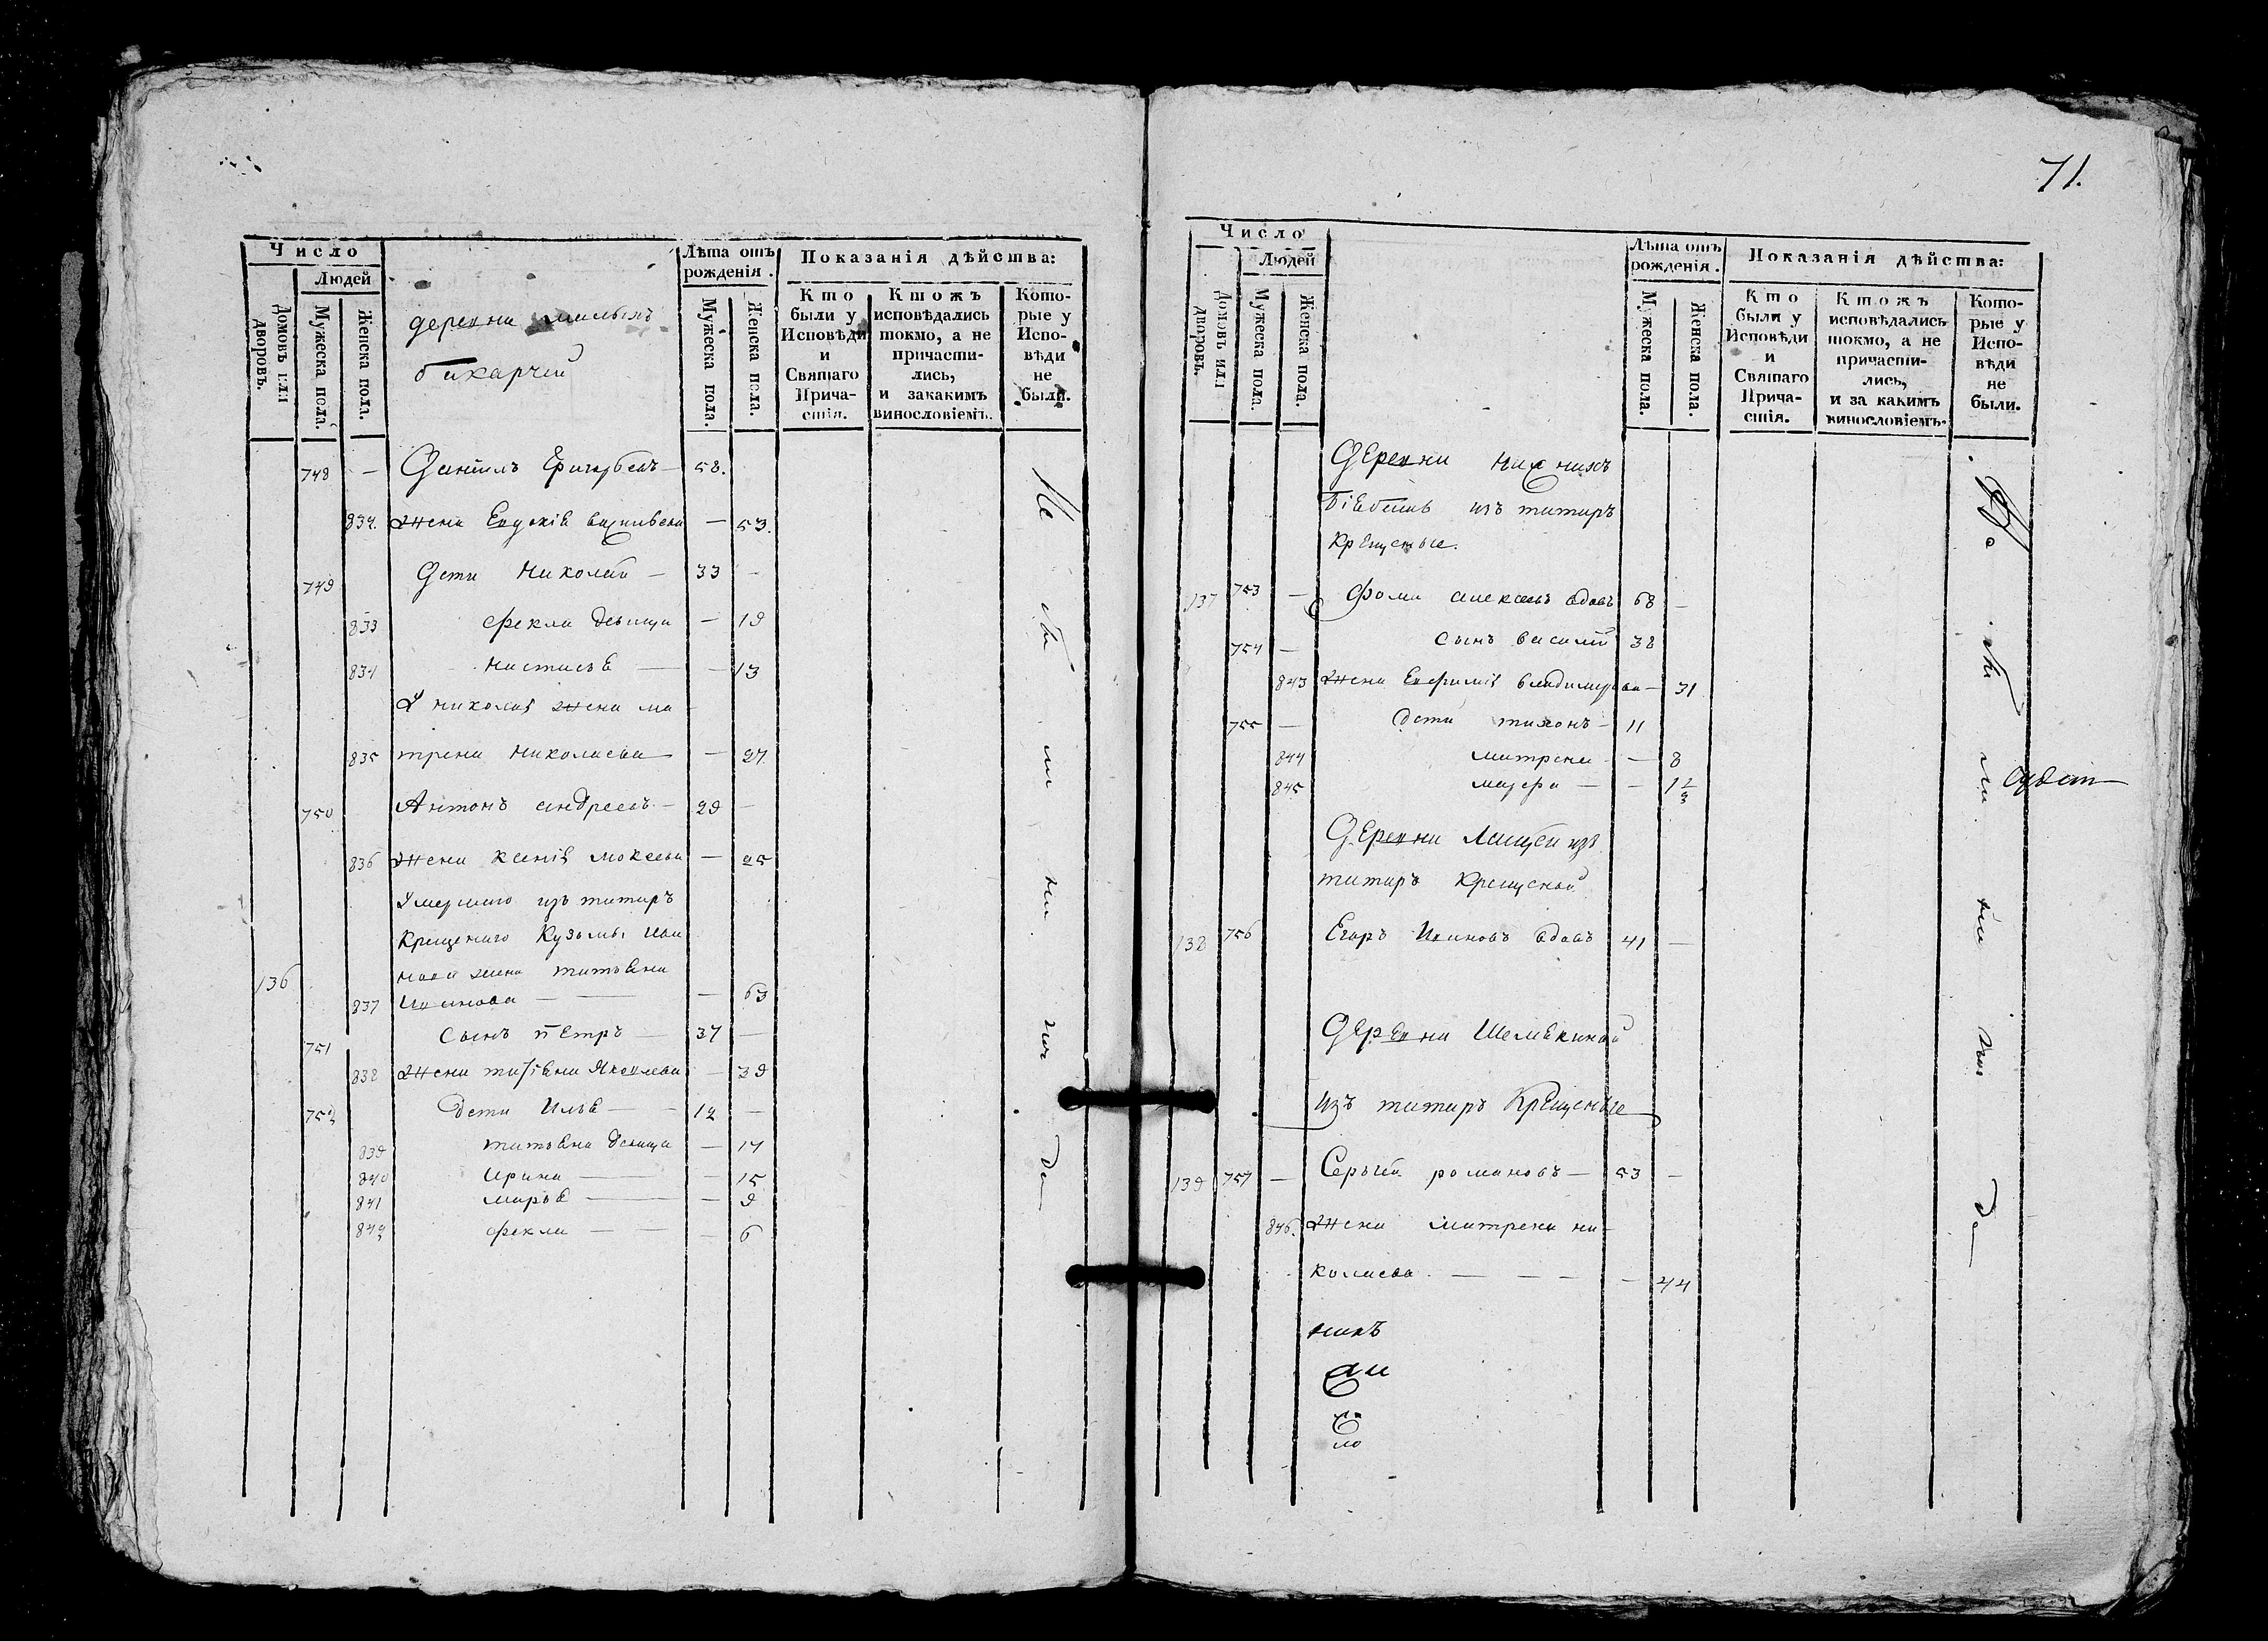 Число
Людей
Домовъ или дворовъ.
Мужеска пола.
Женска пола.
деревни малыхъ
бикарчей
Лѣта отъ рожденія.
Мужеска пола.
Женска пола.
Показанія дѣйства:
Кто были у Исповѣди и Святаго Причастія.
Ктожъ исповѣдались токмо, а не причастились, и закакимъ винословіемъ.
Которые у Исповѣди не были.
748 — Данiилъ Григорьевъ — 58.
832. жена Евдокiя васильева — 53.
749 Дети Николай — 33 —
833 фекла девица — 19
834 настасья — — 13
У николая жена ма
835 трена николаева — — 27
750 Антонъ андреевъ — 29 —
836 жена ксенiя мокеева — 25
Умершаго изъ татаръ
Крещенаго Кузьмы Ива
136 нова жена татьяна
837 Иванова — — — 63
751 сынъ петръ — 37 —
838 жена татiяна Яковлева — 39
752 дети Илья — — 12 —
839 татьяна девица — 17
840 Ирина — — 15
841 марья — — 9
842 фекла — — — 6
не бы ли ни ког да
71.
Число
Людей
Домовъ или дворовъ.
Мужеска пола.
Женска пола.
Лѣта отъ рожденія.
Мужеска пола.
Женска пола.
Показанія дѣйства:
Кто были у Исповѣди и Святаго Причастія.
Ктожъ исповѣдались токмо, а не причастились, и за какимъ винословіемъ.
Которые у Исповѣди не были.
Деревни нижнихъ
изъ татаръ
крещеные.
137 753 — фома алексеевъ вдовъ 68 —
754 — сынъ василiй 38
843 жена Евфимiя владимирова — 31
755 — дети тихонъ — 11
844 матрена — — 8
845 марфа — — 1 2/3
Деревни изъ
татаръ Крещеной
138 756 Егоръ Ивановъ вдовъ 41 —
Деревни Шемякиной
изъ татаръ Крещеные
139 757 — Сергѣй романовъ — 53 —
846. жена матрена ни-
колаева. — — — — 44
не бы ли ни ког да